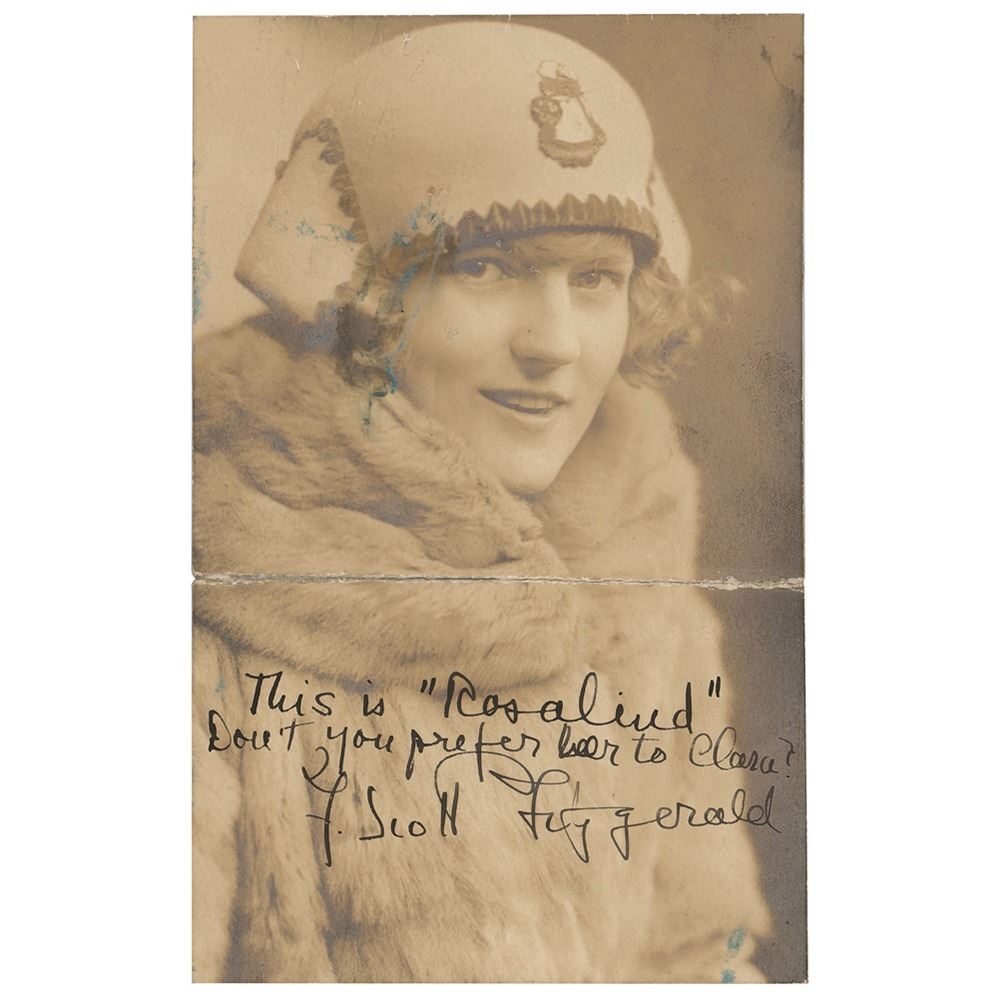 This is "Rosalind"
Don't you prefer her to Clara?
F. Scott Fitzgerald